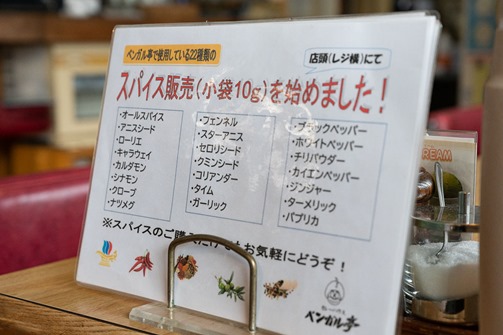 ベンガル亭で使用している22種類の
店頭(レジ横)にて
スパイス販売(小袋10g)を始めました!
・オールスパイス
・アニスシード
・ローリエ
・キャラウェイ
・カルダモン
・シナモン
・クローブ
・ナツメグ
・フェンネル
・スターアニス
・セロリシード
・クミンシード
・コリアンダー
・タイム
・ガーリック
・ブラックペッパー
・ホワイトペッパー
・チリパウダー
・カイエンペッパー
・ジンジャー
・ターメリック
・パプリカ
※スパイスのご購入だけでもお気軽にどうぞ!
ベンガル亭
REAM